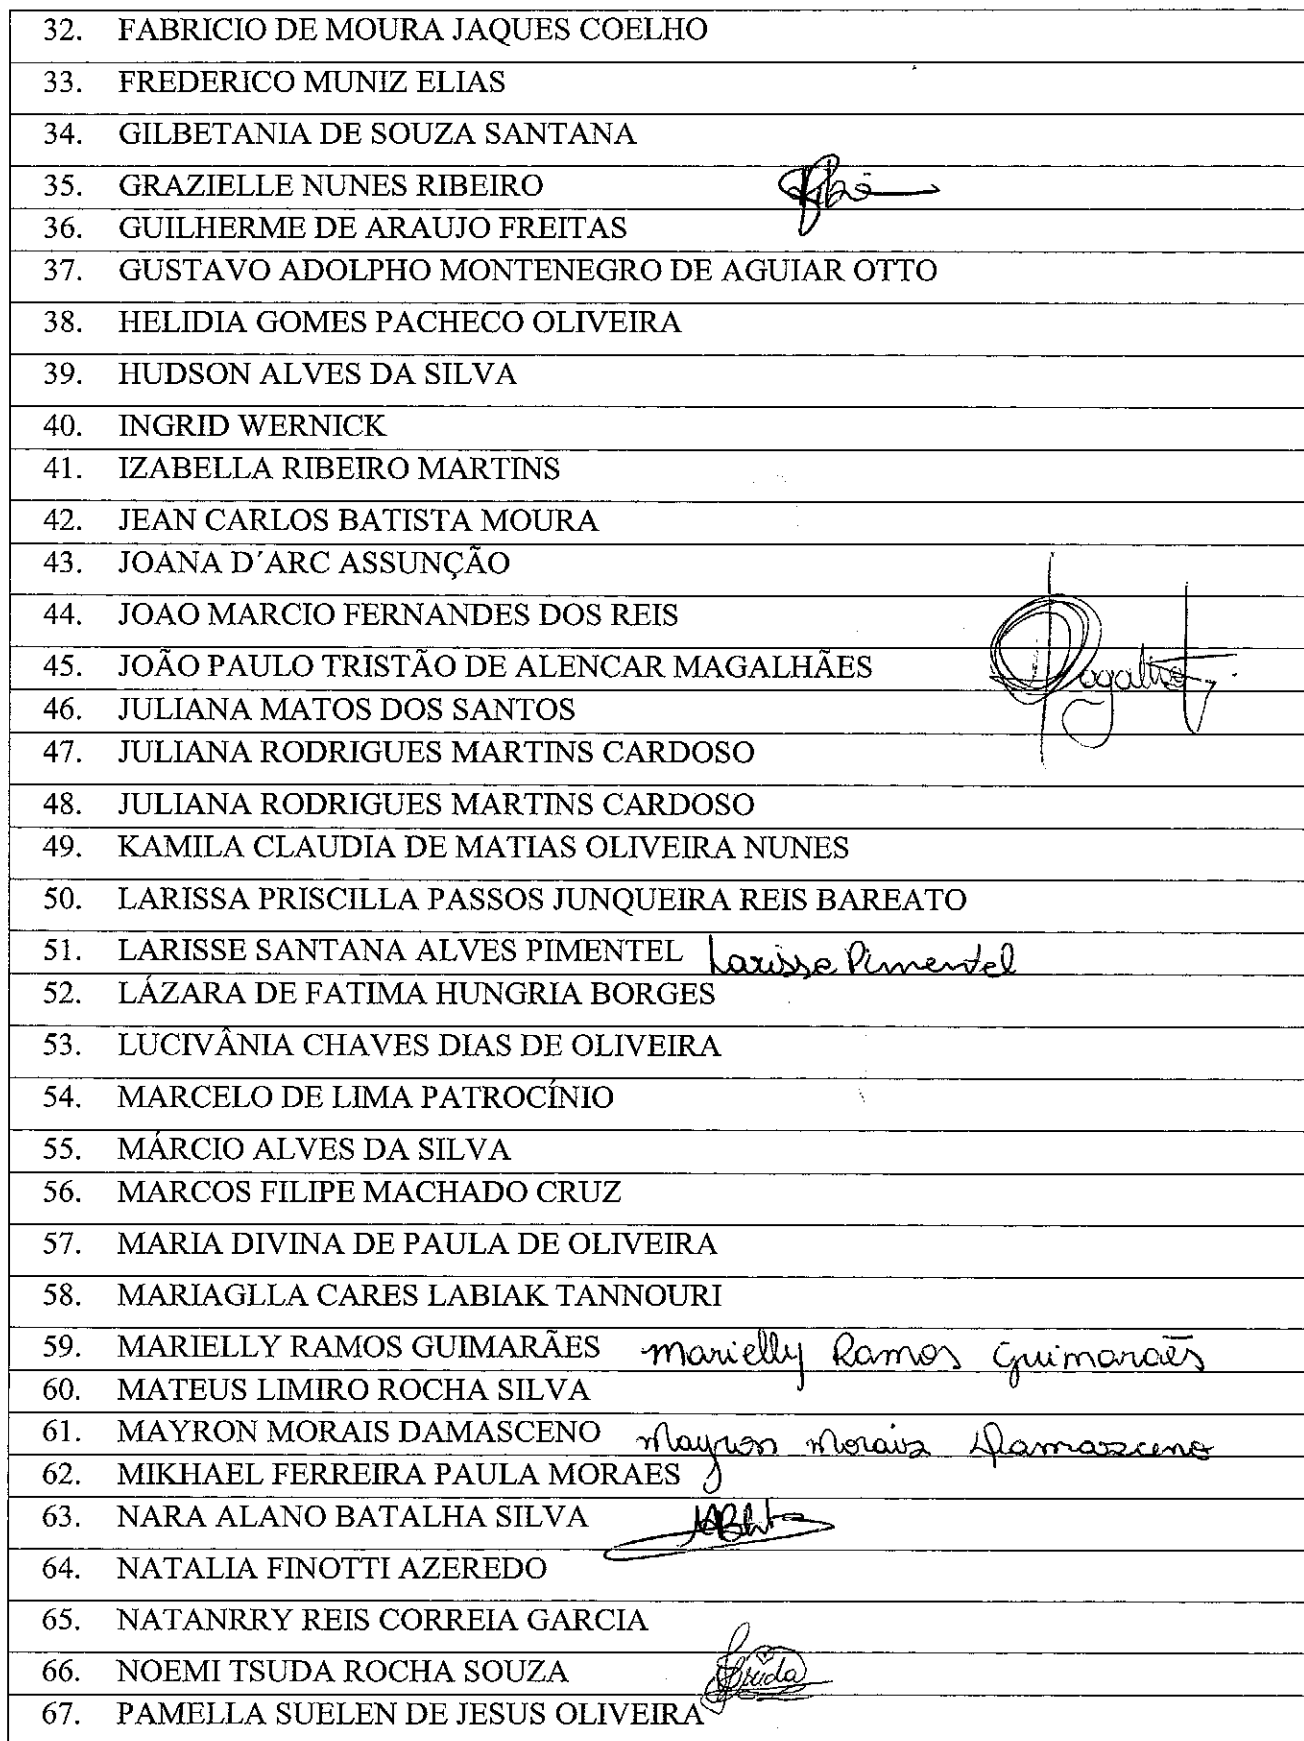 32. FABRICIO DE MOURA JAQUES COELHO
33. FREDERICO MUNIZ ELIAS
34. GILBETANIA DE SOUZA SANTANA
35. GRAZIELLE NUNES RIBEIRO
36. GUILHERME DE ARAUJO FREITAS
37. GUSTAVO ADOLPHO MONTENEGRO DE AGUIAR OTTO
38. HELIDIA GOMES PACHECO OLIVEIRA
39. HUDSON ALVES DA SILVA
40. INGRID WERNICK
41. IZABELLA RIBEIRO MARTINS
42. JEAN CARLOS BATISTA MOURA
43. JOANA D´ARC ASSUNÇÃO
44. JOAO MARCIO FERNANDES DOS REIS
45. JOÃO PAULO TRISTÃO DE ALENCAR MAGALHÃES
46. JULIANA MATOS DOS SANTOS
47. JULIANA RODRIGUES MARTINS CARDOSO
48. JULIANA RODRIGUES MARTINS CARDOSO
49. KAMILA CLAUDIA DE MATIAS OLIVEIRA NUNES
50. LARISSA PRISCILLA PASSOS JUNQUEIRA REIS BAREATO
51. LARISSE SANTANA ALVES PIMENTEL Larisse Pimentel
52. LÁZARA DE FATIMA HUNGRIA BORGES
53. LUCIVÂNIA CHAVES DIAS DE OLIVEIRA
54. MARCELO DE LIMA PATROCÍNIO
55. MÁRCIO ALVES DA SILVA
56. MARCOS FILIPE MACHADO CRUZ
57. MARIA DIVINA DE PAULA DE OLIVEIRA
58. MARIAGLLA CARES LABIAK TANNOURI
59. MARIELLY RAMOS GUIMARÃES Marielly Ramos Guimarães
60. MATEUS LIMIRO ROCHA SILVA
61. MAYRON MORAIS DAMASCENO Mayron Morais Damasceno
62. MIKHAEL FERREIRA PAULA MORAES
63. NARA ALANO BATALHA SILVA
64. NATALIA FINOTTI AZEREDO
65. NATANRRY REIS CORREIA GARCIA
66. NOEMI TSUDA ROCHA SOUZA
67. PAMELLA SUELEN DE JESUS OLIVEIRA